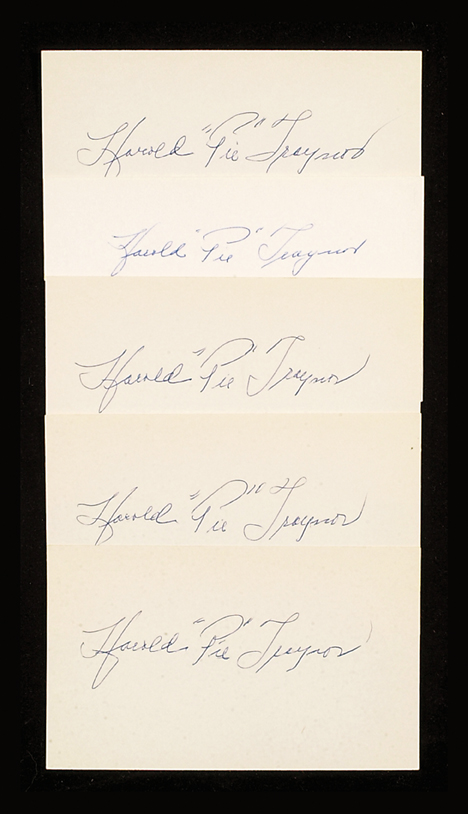 Harold "Pie" Traynor
Harold "Pie" Traynor
Harold "Pie" Traynor
Harold "Pie" Traynor
Harold "Pie" Traynor